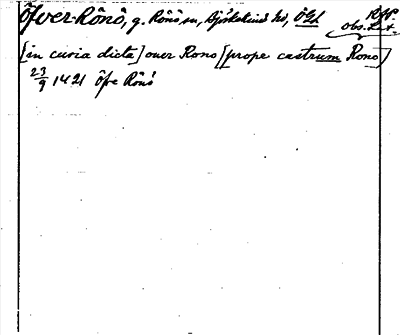 Öfver-Rönö, g. Rönö sn, Björkekinds hd, ÖGL RAP
obs. Lat.
[in curia dicta] ouer Rono [prope castrum Rono]
23/9 1421 Öfre Rönö